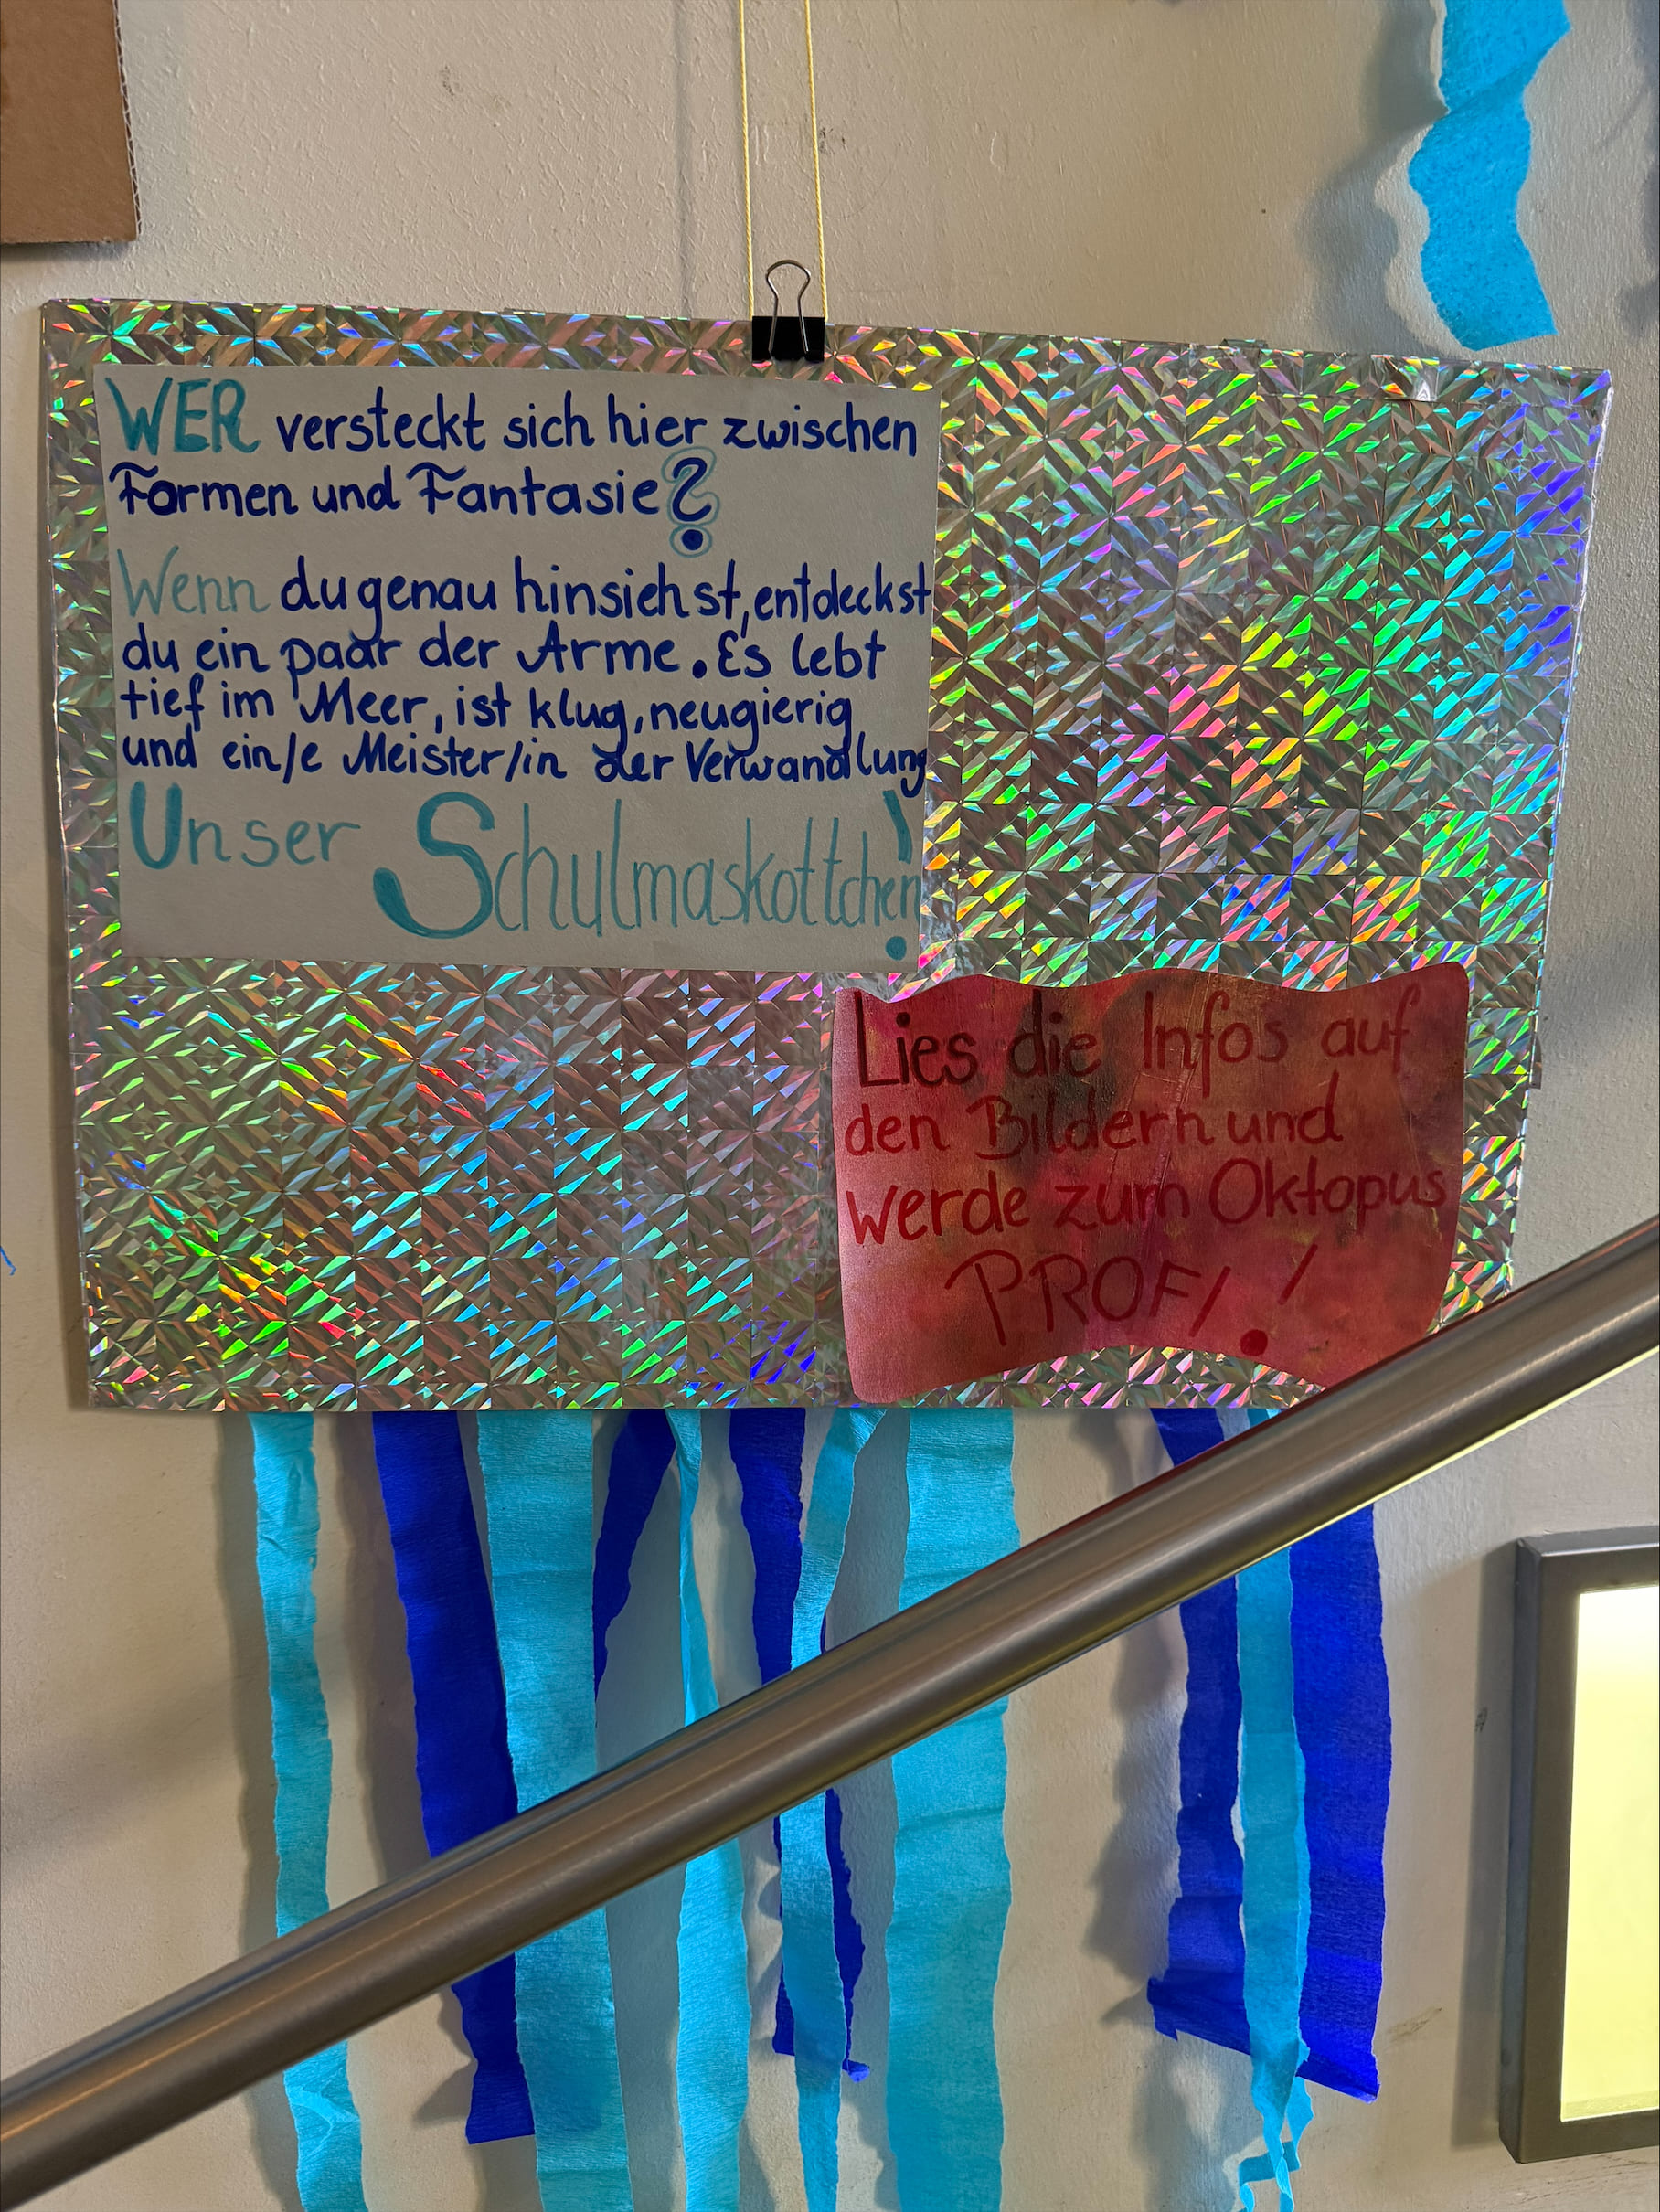 WER versteckt sich hier zwischen
Formen und Fantasie?
Wenn du genau hinsiehst, entdeckst
du ein paar der Arme. Es lebt
tief im Meer, ist klug, neugierig
und ein/e Meister/in der Verwandlung
Unser Schulmaskottchen!
Lies die Infos auf
den Bildern und
werde zum Oktopus
PROFI!